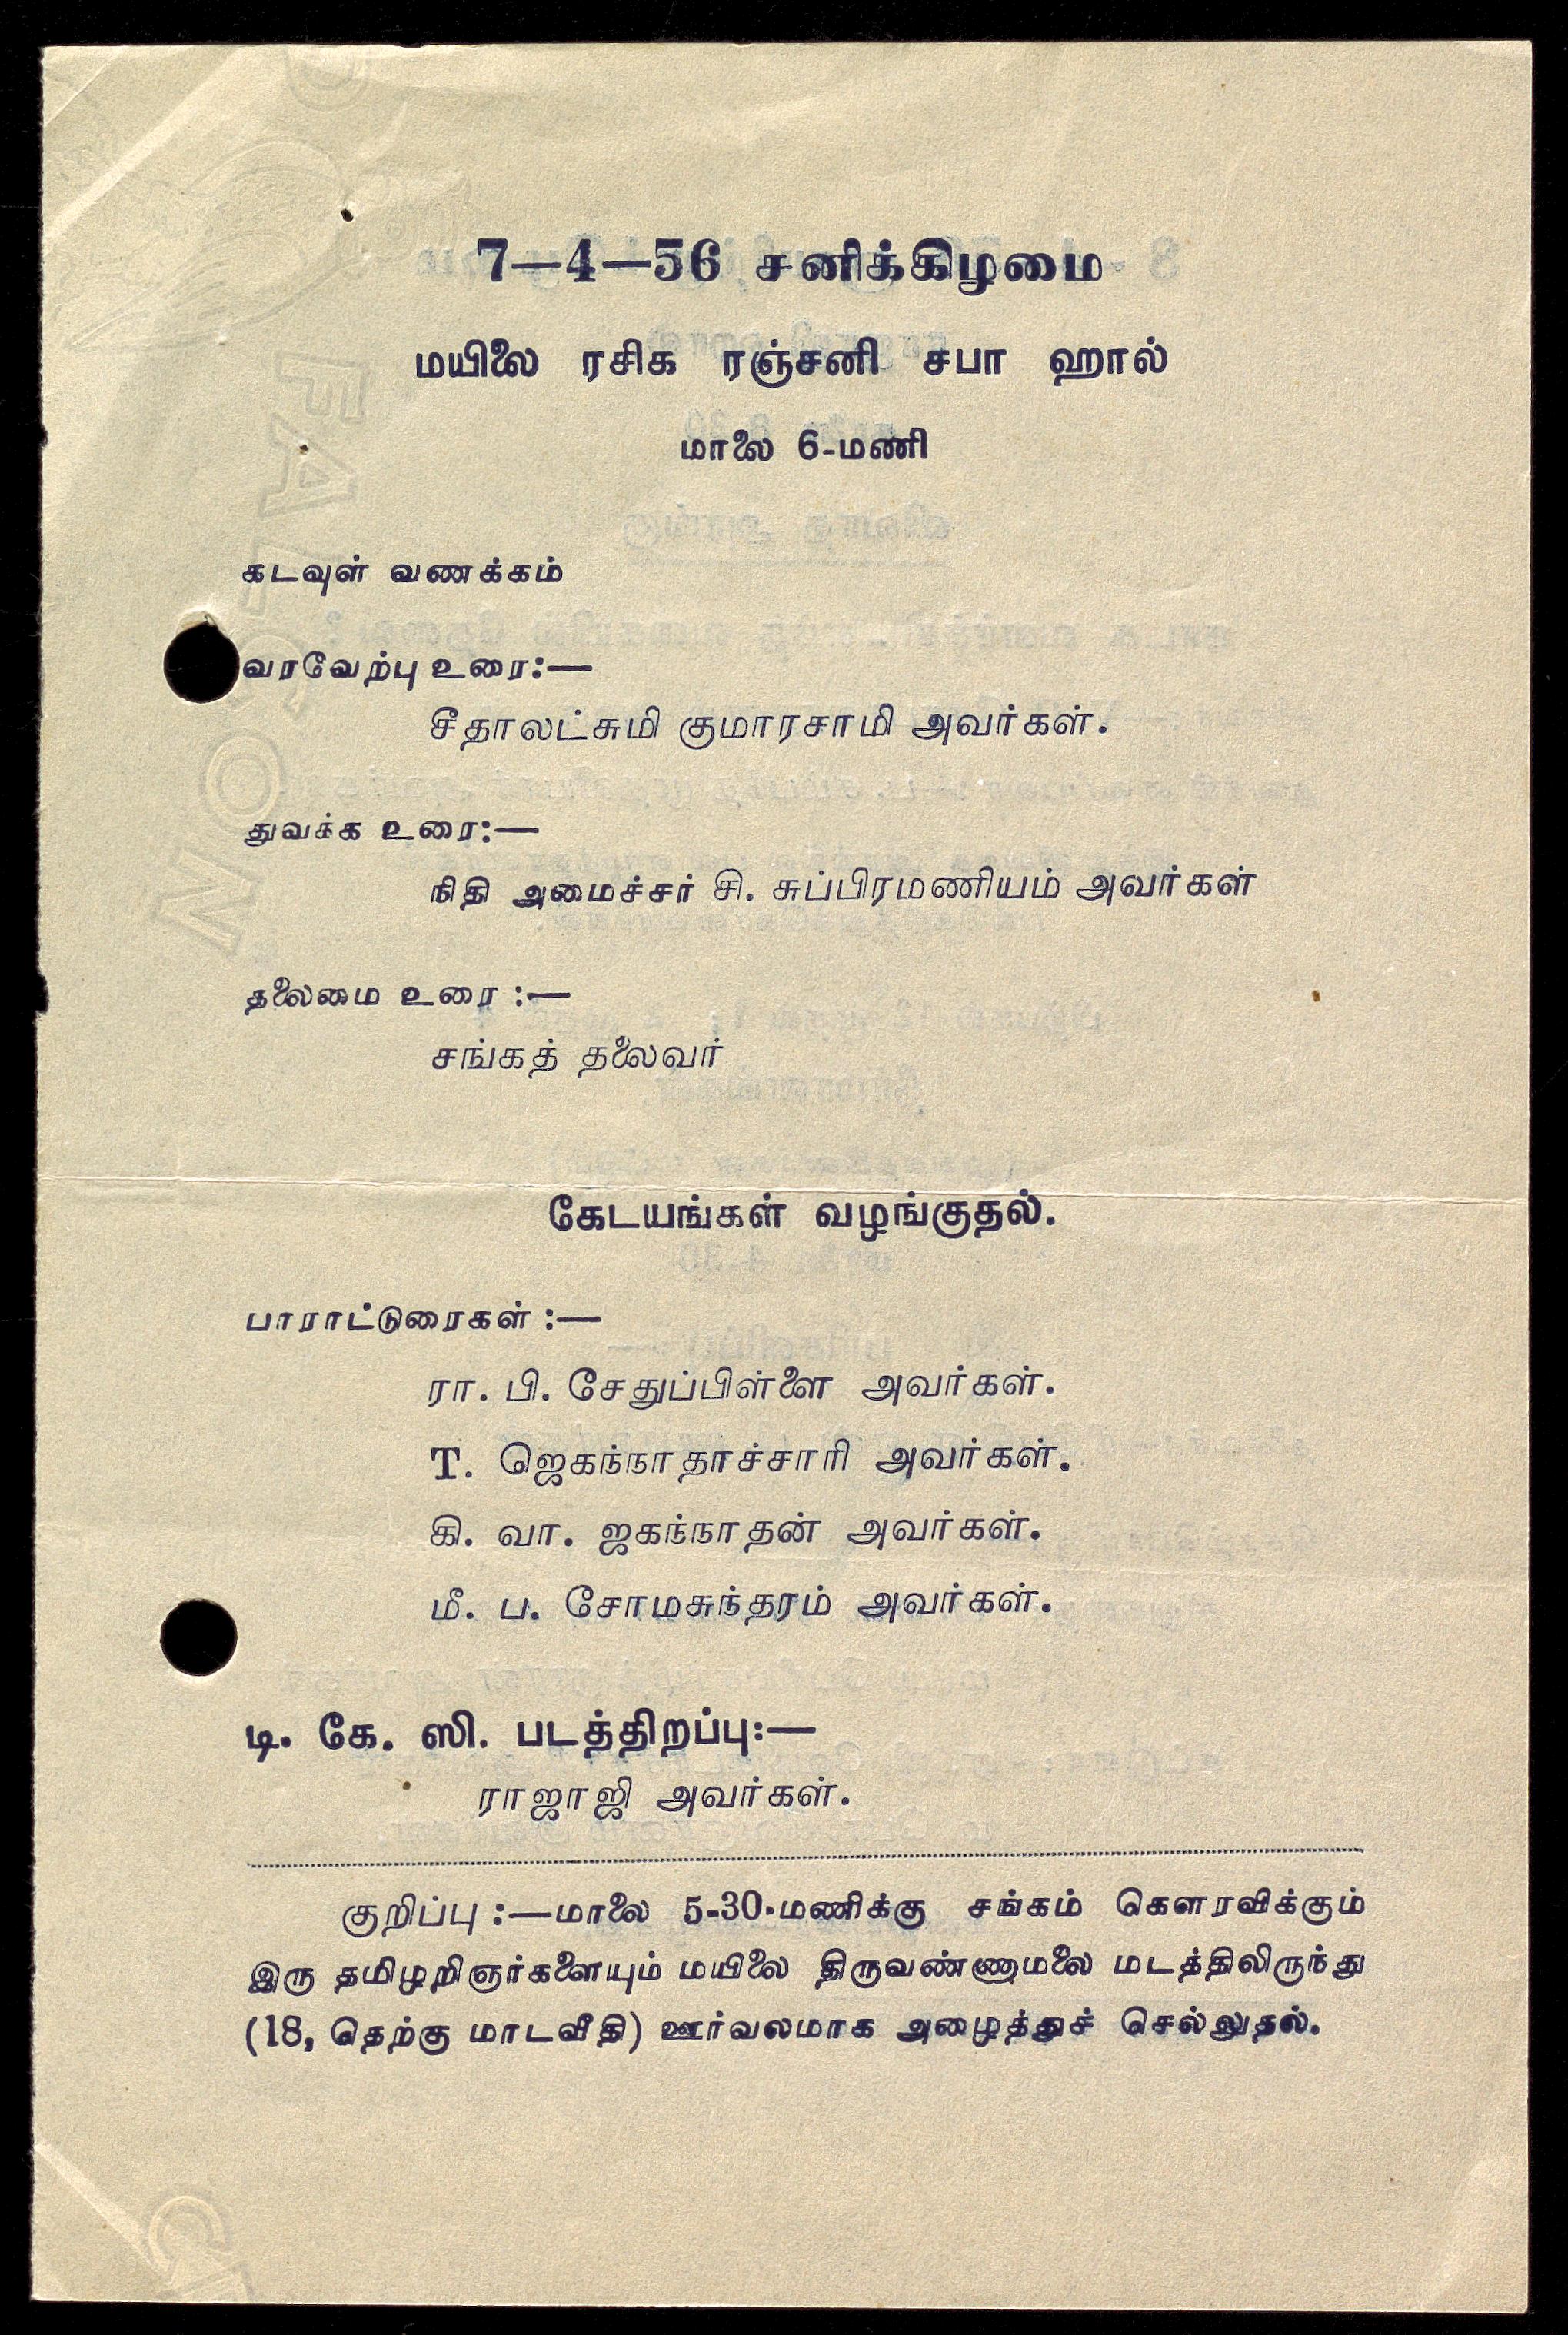 7—4—56 சனிக்கிழமை
மயிலை ரசிக ரஞ்சனி சபா ஹால்
மாலை 6-மணி
கடவுள் வணக்கம்
வரவேற்பு உரை:—
சீதாலட்சுமி குமாரசாமி அவர்கள்.
துவக்க உரை:—
நிதி அமைச்சர் சி. சுப்பிரமணியம் அவர்கள்
தலைமை உரை :—
சங்கத் தலைவர்
கேடயங்கள் வழங்குதல்.
பாராட்டுரைகள் :—
ரா. பி. சேதுப்பிள்ளை அவர்கள்.
T. ஜெகந்நாதாச்சாரி அவர்கள்.
கி. வா. ஜகந்நாதன் அவர்கள்.
மீ. ப. சோமசுந்தரம் அவர்கள்.
டி. கே. ஸி. படத்திறப்பு:—
ராஜாஜி அவர்கள்.
குறிப்பு :—மாலை 5-30-மணிக்கு சங்கம் கௌரவிக்கும்
இரு தமிழறிஞர்களையும் மயிலை திருவண்ணாமலை மடத்திலிருந்து
(18, தெற்கு மாடவீதி) ஊர்வலமாக அழைத்துச் செல்லுதல்.